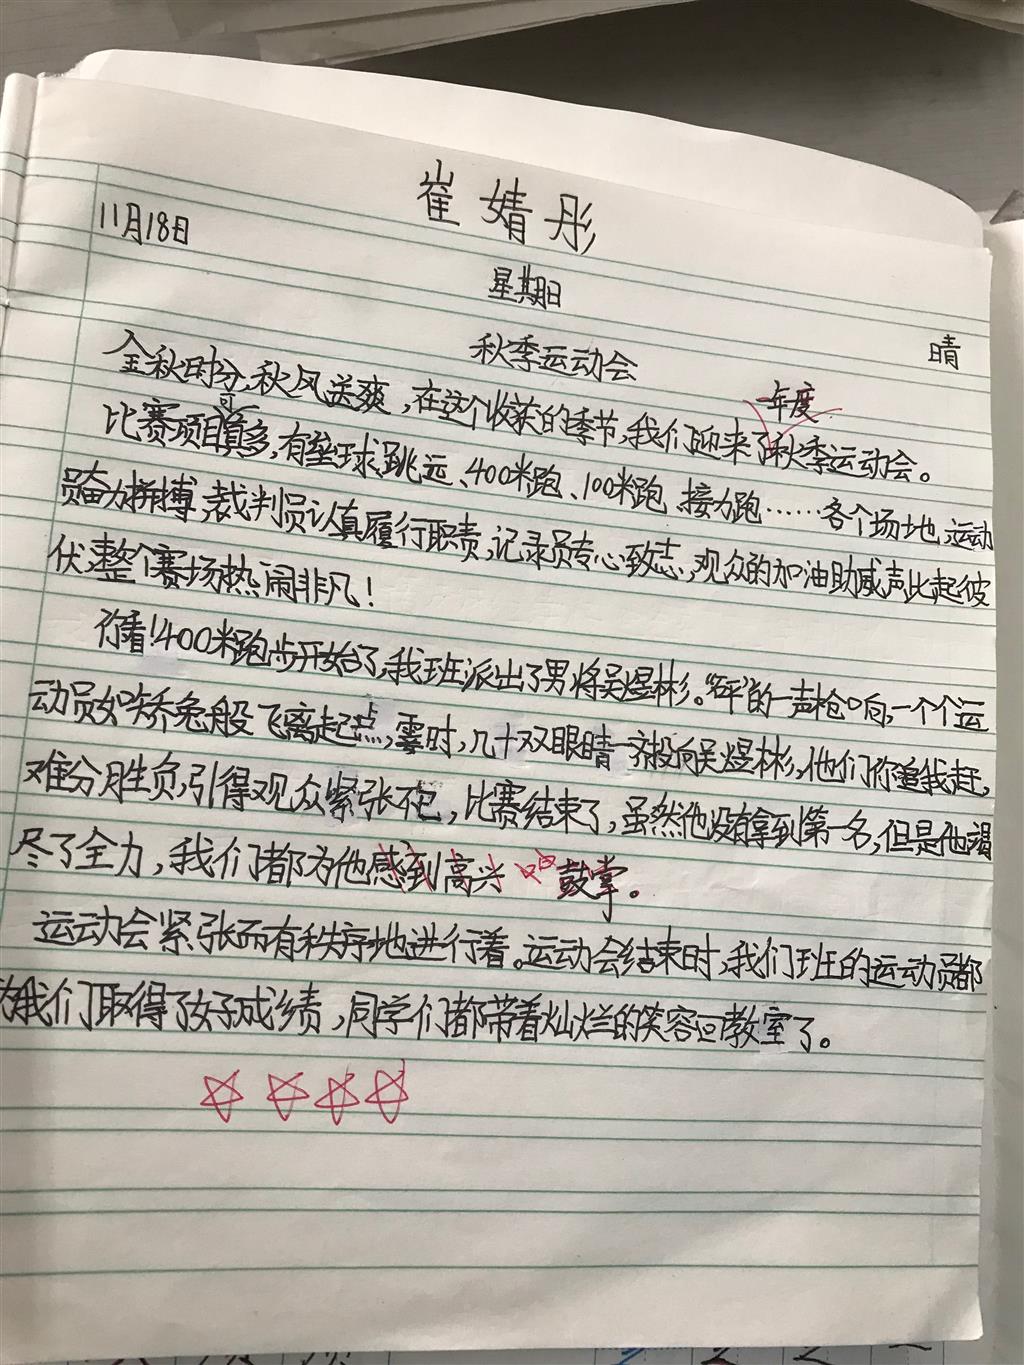 崔婧彤
11月18日
星期日
晴
秋季运动会
金秋时分,秋风送爽,在这个收获的季节,我们迎来了年度秋季运动会。
比赛项目可真多,有垒球、跳远、400米跑、100米跑、接力跑……各个场地,运动
员奋力拼搏,裁判员认真履行职责,记录员专心致志,观众的加油助威声此起彼
伏,整个赛场热闹非凡!
你看!400米跑步开始了,我班派出了男将吴煜彬。“砰”的一声枪响,一个个运
动员如矫兔般飞离起点,霎时,几十双眼睛一齐投向吴煜彬,他们你追我赶,
难分胜负,引得观众紧张不已,比赛结束了,虽然他没有拿到第一名,但是他竭
尽了全力,我们都为他感到高兴 鼓掌。
运动会紧张而有秩序地进行着。运动会结束时,我们班的运动员都
为我们取得了好成绩,同学们都带着灿烂的笑容回教室了。